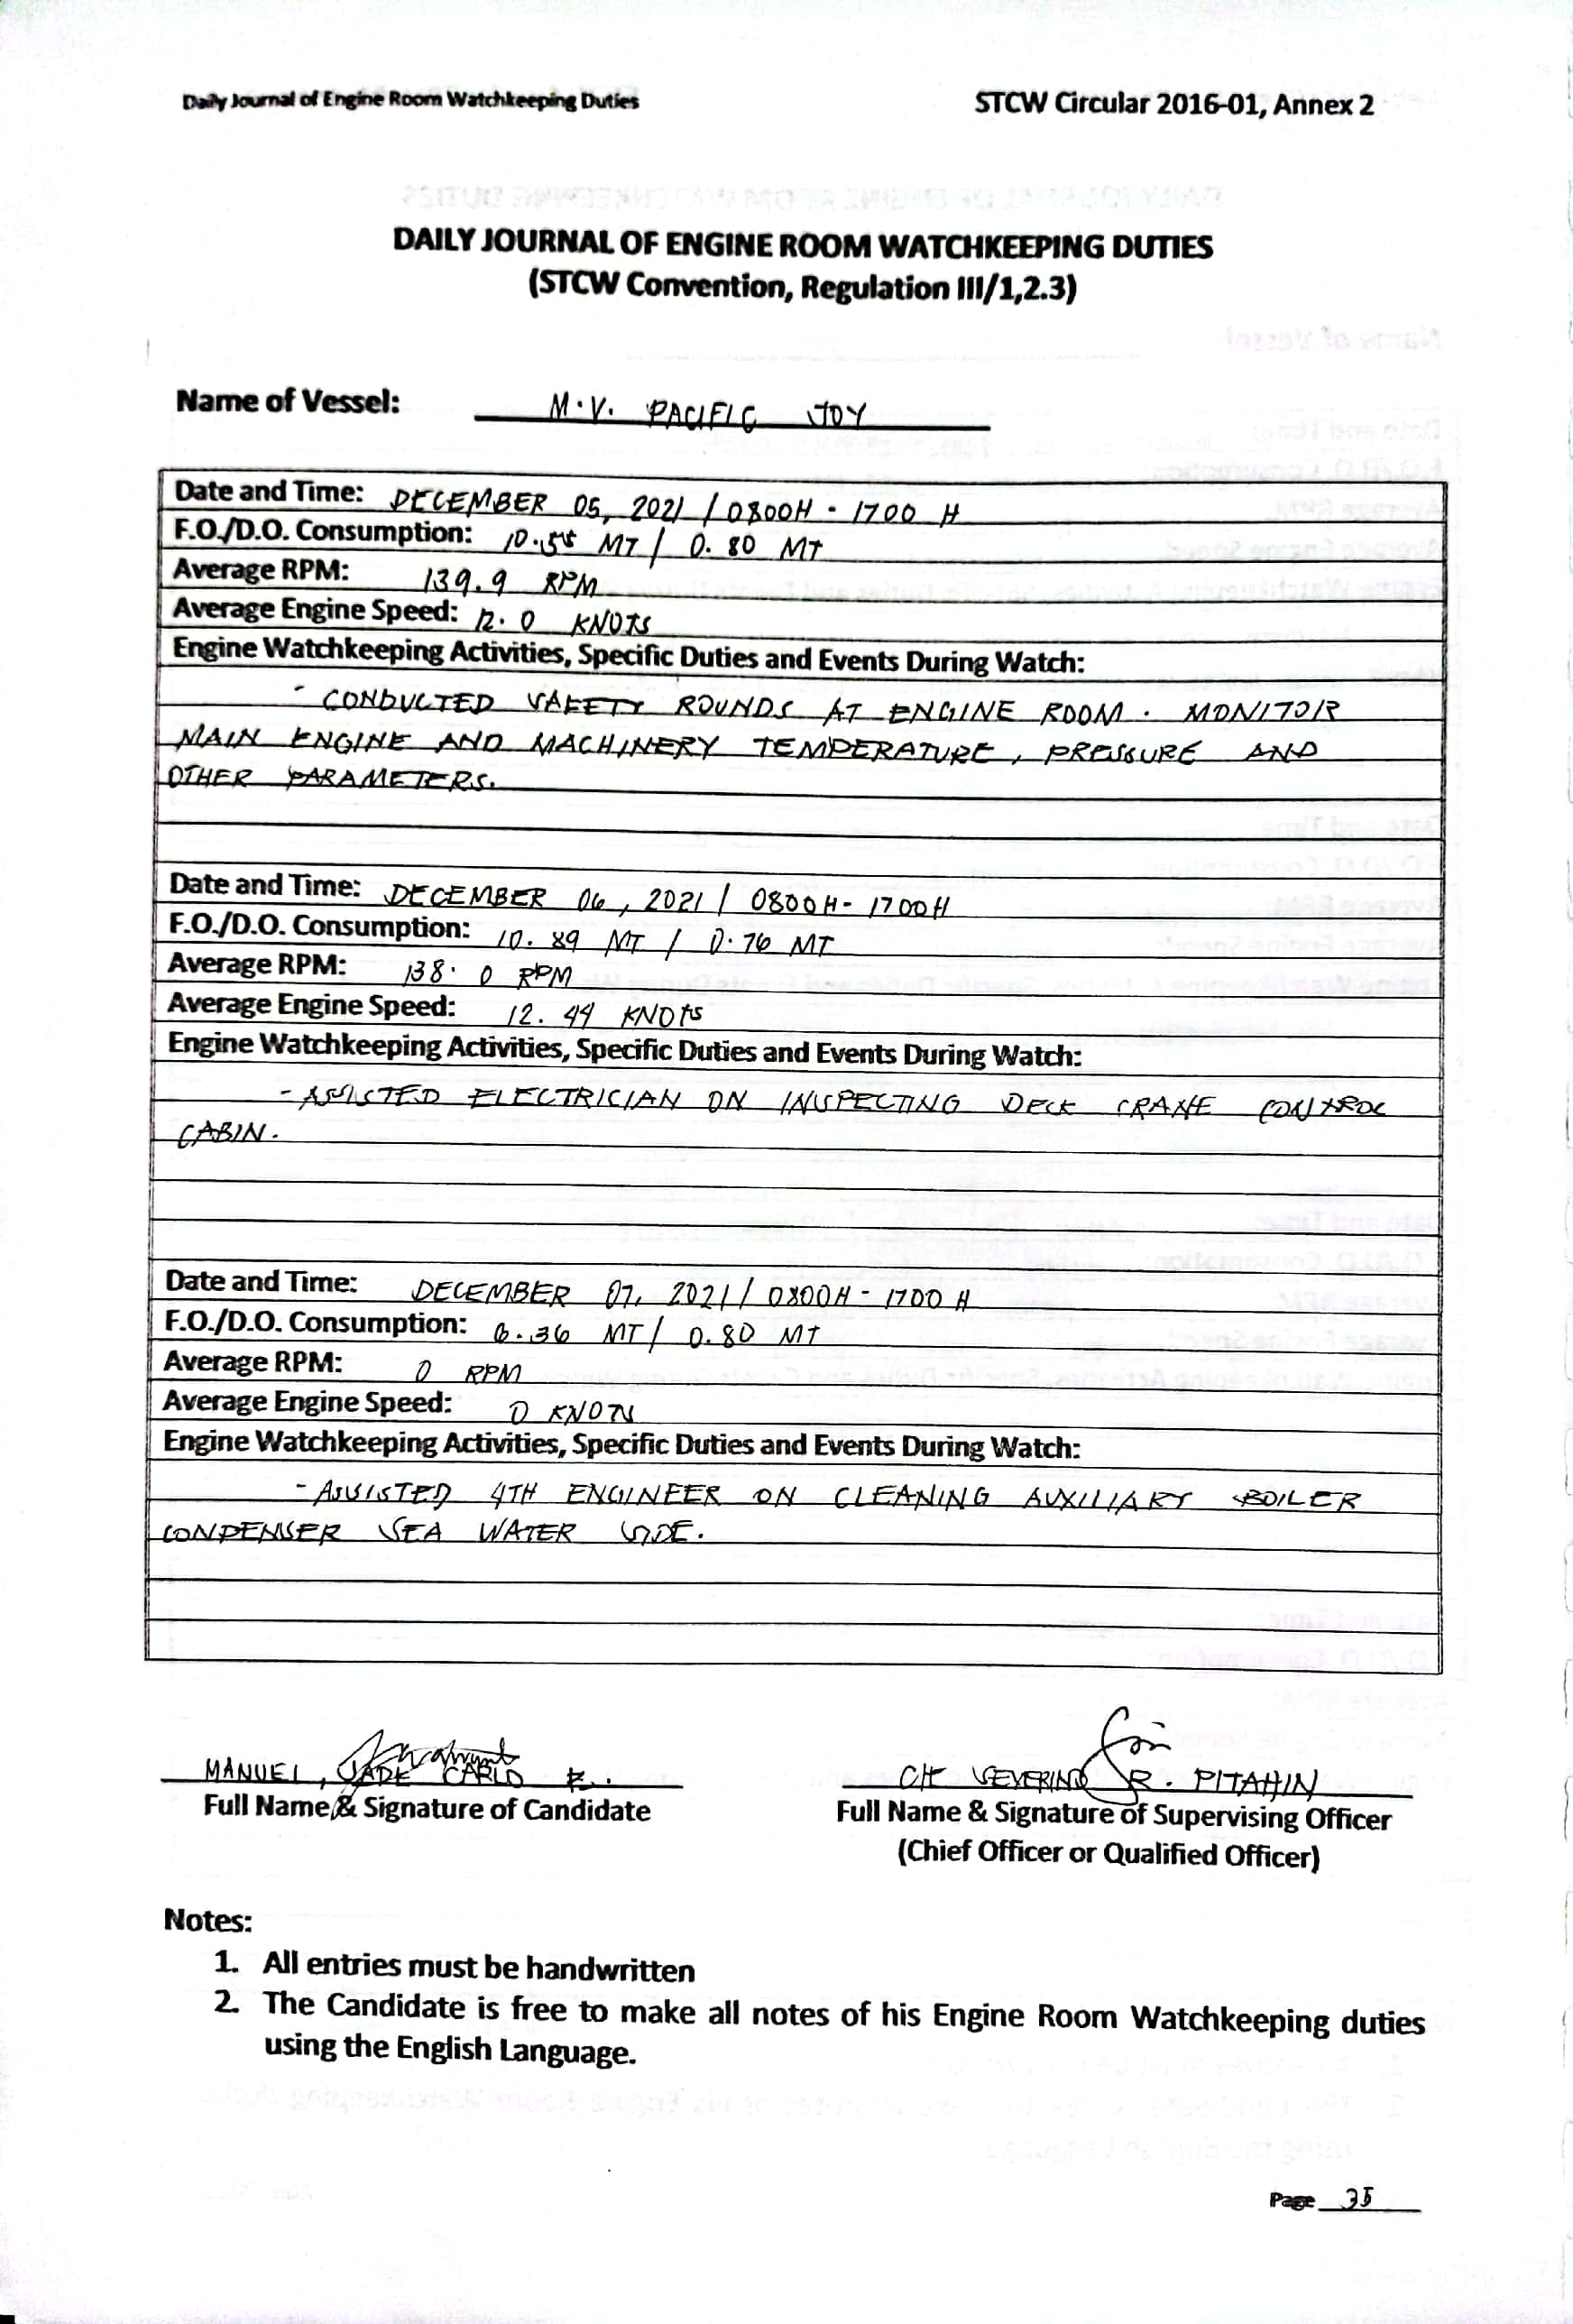 Daily Journal of Engine Room Watchkeeping Duties
STCW Circular 2016-01, Annex 2
DAILY JOURNAL OF ENGINE ROOM WATCHKEEPING DUTIES
(STCW Convention, Regulation III/1,2.3)
Name of Vessel: M.V. PACIFIC JOY
Date and Time: DECEMBER 05, 2021 / 0800H - 1700 H
F.O./D.O. Consumption: MT / 0.80 MT
Average RPM: 139.9 RPM
Average Engine Speed: 12.0 KNOTS
Engine Watchkeeping Activities, Specific Duties and Events During Watch:
- CONDUCTED SAFETY ROUNDS AT ENGINE ROOM. MONITOR
MAIN ENGINE AND MACHINERY TEMPERATURE, PRESSURE AND
OTHER PARAMETERS.
Date and Time: DECEMBER 06, 2021 / 0800H - 1700H
F.O./D.O. Consumption: 10.89 MT / 0.76 MT
Average RPM: 138.0 RPM
Average Engine Speed: 12.44 KNOTS
Engine Watchkeeping Activities, Specific Duties and Events During Watch:
- ASSISTED ELECTRICIAN ON INSPECTING DECK CRANE CONTROL
CABIN.
Date and Time: DECEMBER 07, 2021 / 0800H - 1700 H
F.O./D.O. Consumption: MT / 0.80 MT
Average RPM: 0 RPM
Average Engine Speed: 0 KNOTS
Engine Watchkeeping Activities, Specific Duties and Events During Watch:
- ASSISTED 4TH ENGINEER ON CLEANING AUXILIARY BOILER
CONDENSER SEA WATER SIDE.
MANUEL, JADE CARLO
C/E SEVERINO R. PITAHIN
Full Name & Signature of Candidate
Full Name & Signature of Supervising Officer
(Chief Officer or Qualified Officer)
Notes:
1. All entries must be handwritten
2. The Candidate is free to make all notes of his Engine Room Watchkeeping duties
using the English Language.
Page 35